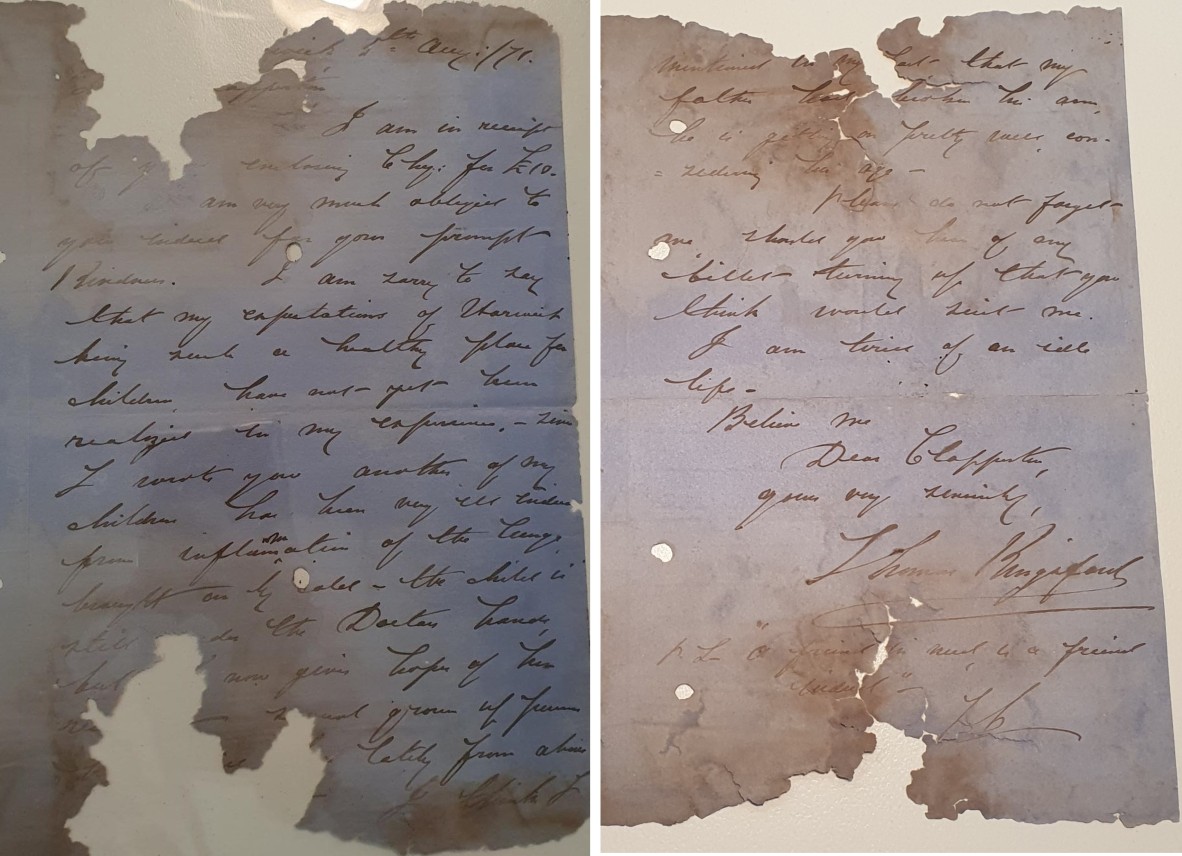 wich 5th Aug:/71.
I am in receipt
of enclosing Chq: for £10.
am very much obliged to
you indeed for your prompt
kindness. I am sorry to say
that my expectations of Harwich
being such a healthy place for
children, have not yet been
realized in my experience, - since
I wrote you another of my
children has been very ill indeed
from inflammation of the lungs,
brought on by cold - the child is
still the Doctors hands,
but now gives hopes of him
grown up
lately from
I think I
mentioned in my last that my
father had broken his arm,
he is getting on pretty well, con-
= sidering his age -
Please do not forget
me, should you hear of any
billet turning up that you
think would suit me.
I am tired of an idle
life -
Believe me
Dear Clapperton,
yours very sincerely,
Thomas Kingsford
P.S. "a friend in need is a friend
indeed" -
TK